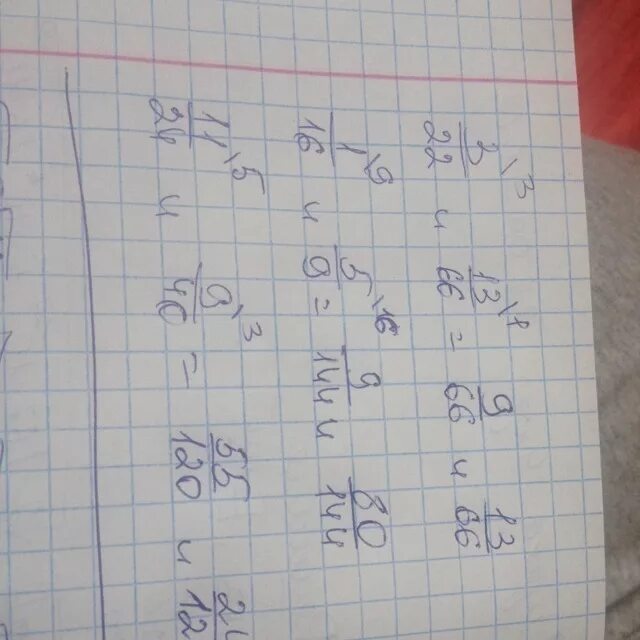 3/22 \3 и 13/66 \1 = 9/66 и 13/66
1/16 \9 и 5/9 \16 = 9/144 и 80/144
11/24 \5 и 9/40 \3 = 55/120 и